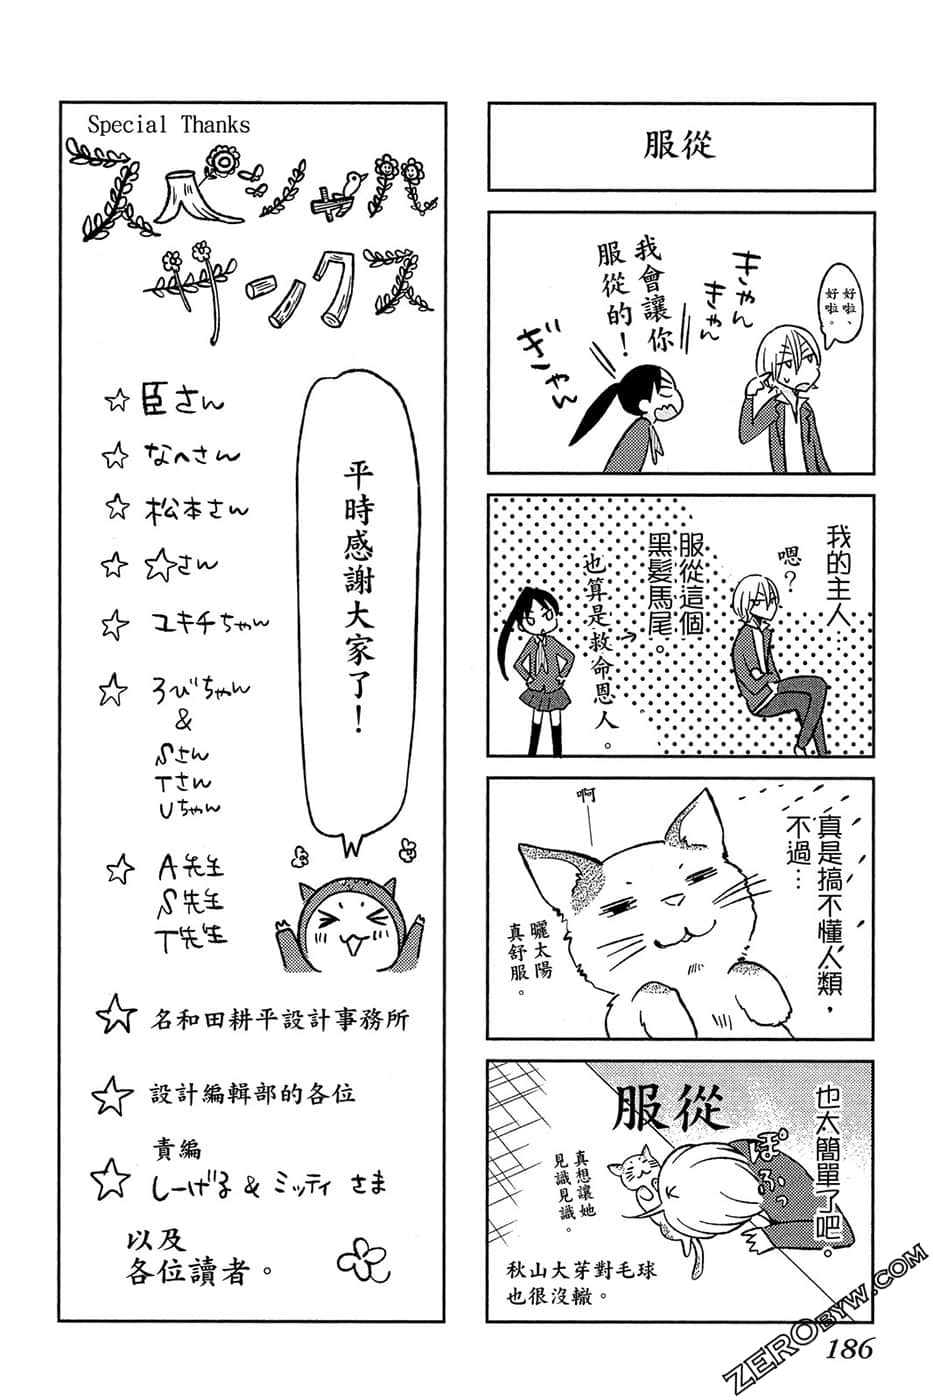 服從
好啦、
好啦。
きゃん
きゃん
我會讓你
服從的！
ぎゃん
我的主人…
嗯？
服從這個
黑髮馬尾。
也算是救命恩人。
真是搞不懂人類，
不過…
啊
曬太陽
真舒服。
也太簡單了吧。
服從
ぽふっ
真想讓她
見識見識。
秋山大芽對毛球
也很沒轍。
Special Thanks
スペシャル
サンクス
平時感謝大家了！
☆臣さん
☆なへさん
☆松本さん
☆☆さん
☆ユキチちゃん
☆ろびちゃん
&
Sさん
Tさん
Uちゃん
☆A先生
S先生
T先生
☆名和田耕平設計事務所
☆設計編輯部的各位
責編
☆しーげる & ミッティ さま
以及
各位讀者。
186
ZEROBYW.COM